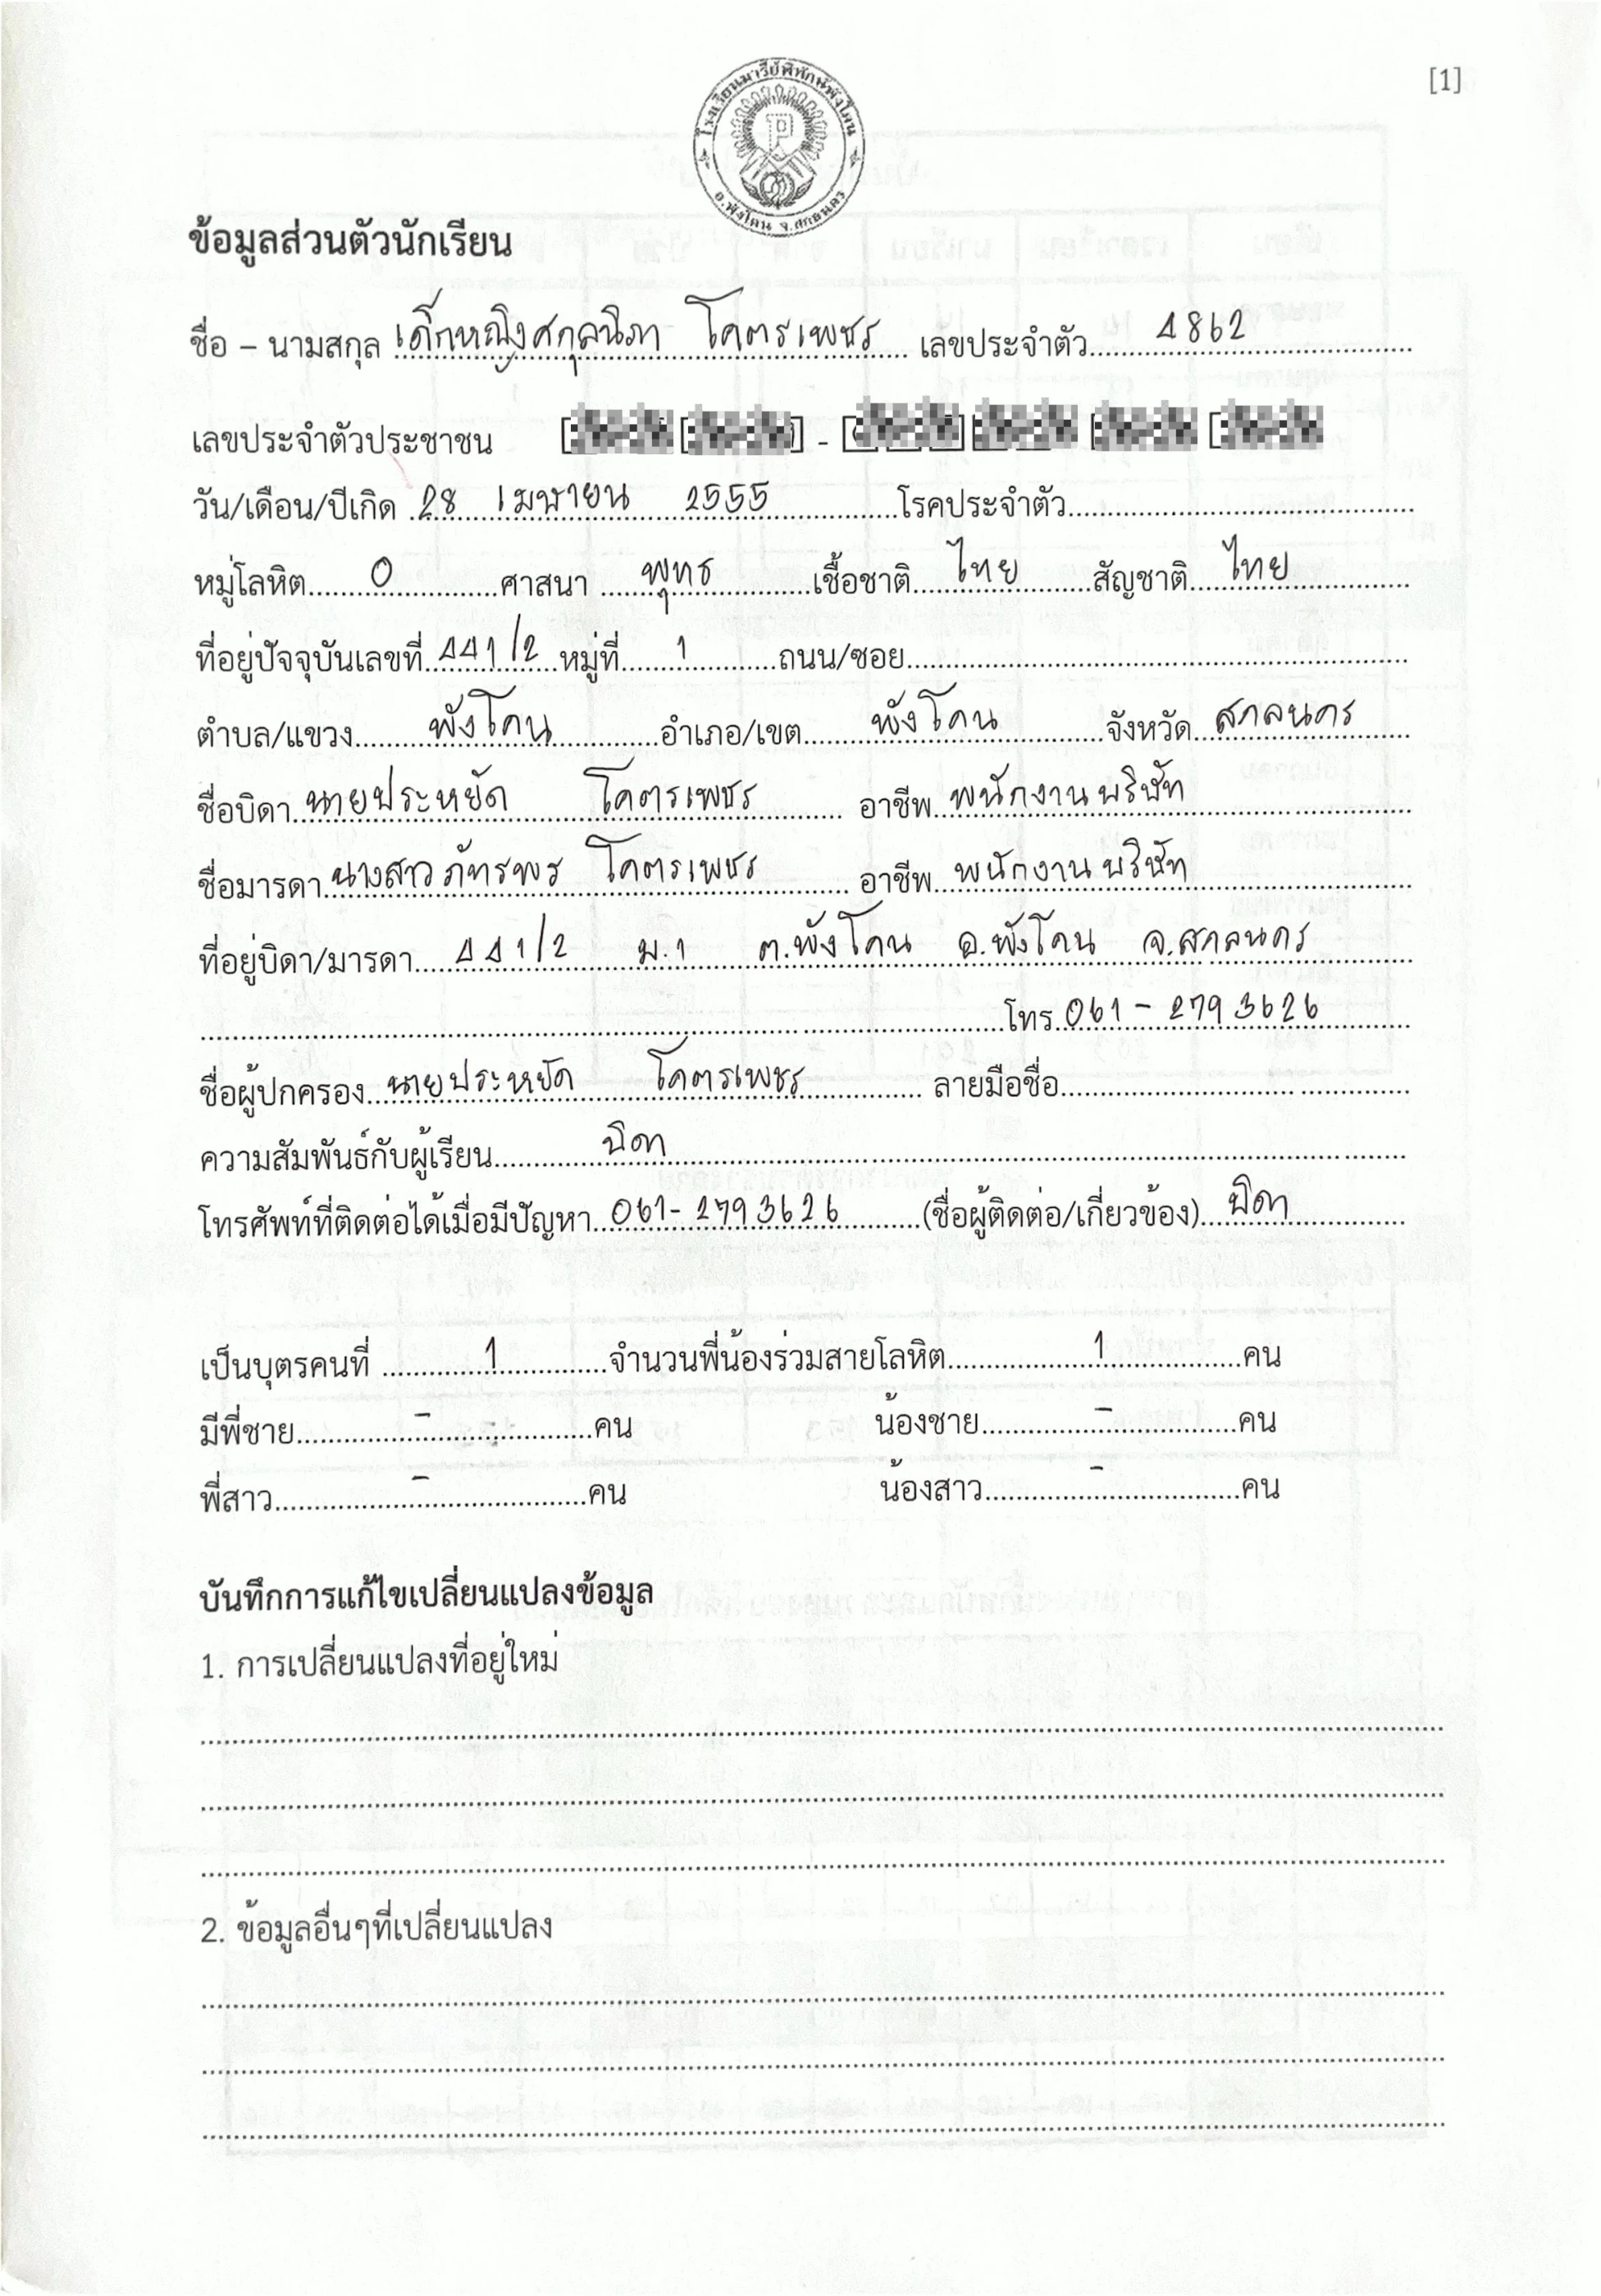 [1]
โรงเรียนมารีย์พิทักษ์พังโคน
อ.พังโคน จ.สกลนคร
ข้อมูลส่วนตัวนักเรียน
ชื่อ – นามสกุล เด็กหญิงศกุลนิภา โคตรเพชร เลขประจำตัว 4862
เลขประจำตัวประชาชน
วัน/เดือน/ปีเกิด 28 เมษายน 2555 โรคประจำตัว
หมู่โลหิต O ศาสนา พุทธ เชื้อชาติ ไทย สัญชาติ ไทย
ที่อยู่ปัจจุบันเลขที่ 441/2 หมู่ที่ 1 ถนน/ซอย
ตำบล/แขวง พังโคน อำเภอ/เขต พังโคน จังหวัด สกลนคร
ชื่อบิดา นายประหยัด โคตรเพชร อาชีพ พนักงานบริษัท
ชื่อมารดา นางสาวภัทรพร โคตรเพชร อาชีพ พนักงานบริษัท
ที่อยู่บิดา/มารดา 441/2 ม.1 ต.พังโคน อ.พังโคน จ.สกลนคร
โทร. 061-2793626
ชื่อผู้ปกครอง นายประหยัด โคตรเพชร ลายมือชื่อ
ความสัมพันธ์กับผู้เรียน บิดา
โทรศัพท์ที่ติดต่อได้เมื่อมีปัญหา 061-2793626 (ชื่อผู้ติดต่อ/เกี่ยวข้อง) บิดา
เป็นบุตรคนที่ 1 จำนวนพี่น้องร่วมสายโลหิต 1 คน
มีพี่ชาย - คน น้องชาย - คน
พี่สาว - คน น้องสาว - คน
บันทึกการแก้ไขเปลี่ยนแปลงข้อมูล
1. การเปลี่ยนแปลงที่อยู่ใหม่
2. ข้อมูลอื่นๆที่เปลี่ยนแปลง